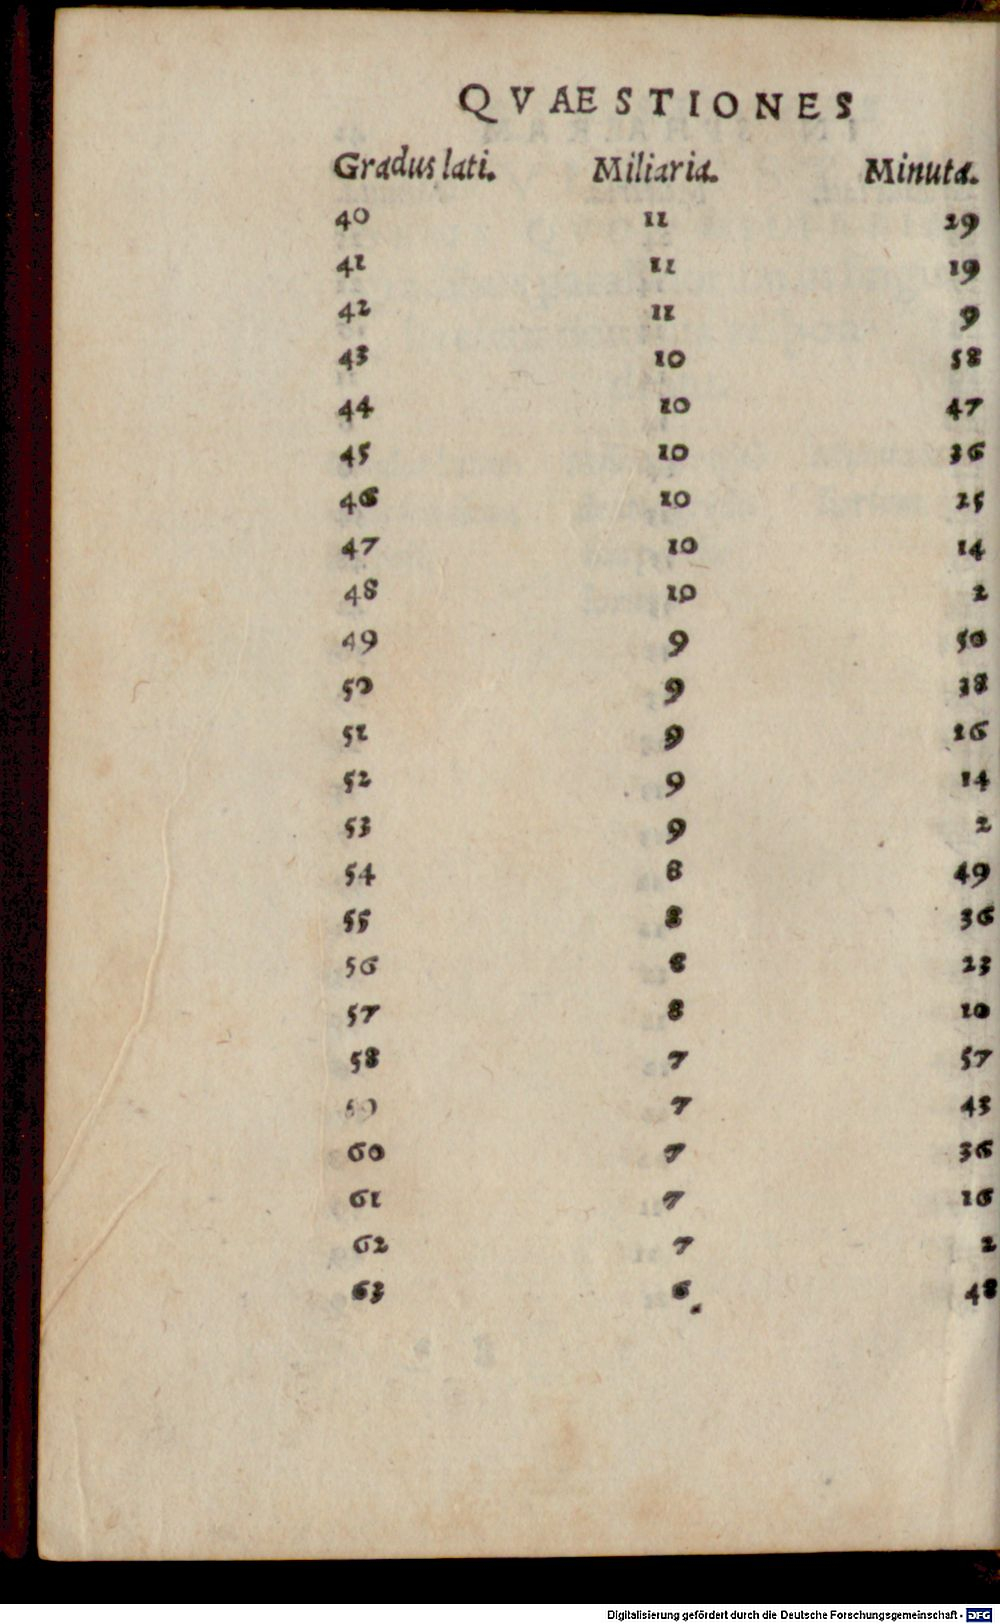 QVAESTIONES
Gradus lati. Miliaria. Minuta.
40 11 29
41 11 19
42 11 9
43 10 58
44 10 47
45 10 36
46 10 25
47 10 14
48 10 2
49 9 50
50 9 38
51 9 26
52 9 14
53 9 2
54 8 49
55 8 36
56 8 23
57 8 10
58 7 57
59 7 43
60 7 36
61 7 16
62 7 2
63 6 48
Digitalisierung gefördert durch die Deutsche Forschungsgemeinschaft - DFG